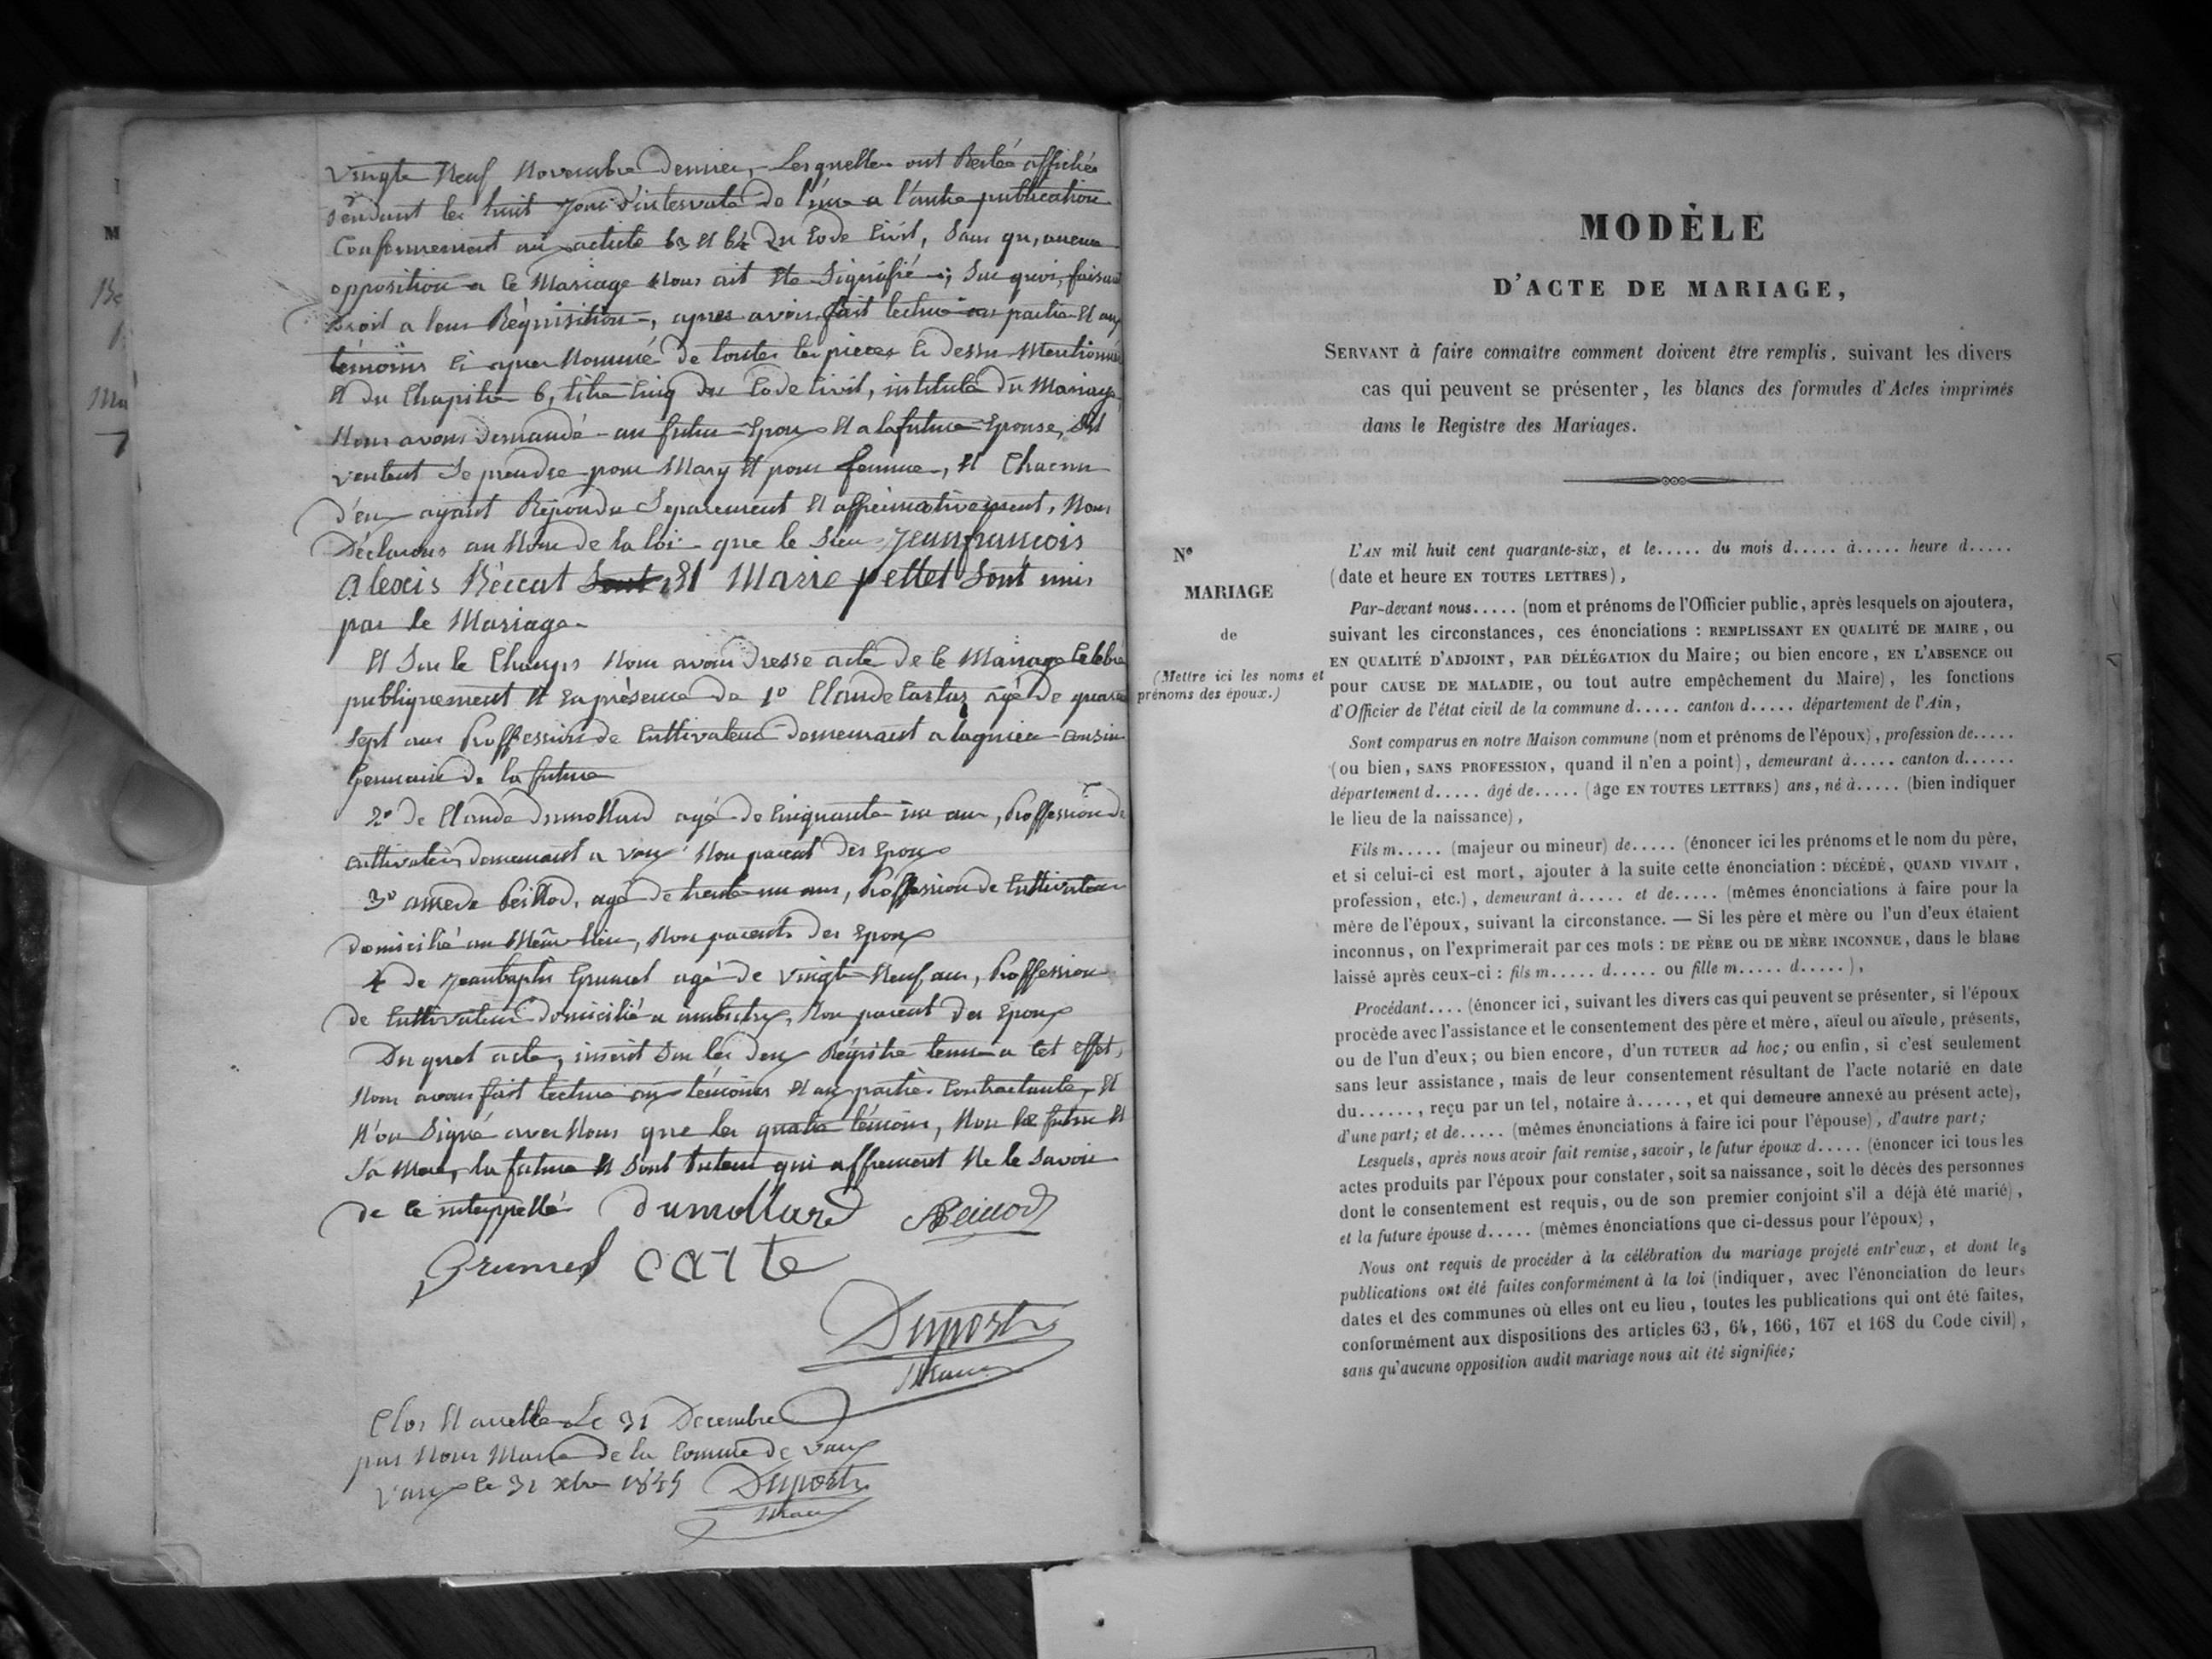 Vingte Neuf Novembre Dernier, Lesquelles ont Restée affichée
Pendant les huit Jours d'intervale De l'une a l'autre publication
Conformement au article 63 Et 64 Du Code Civil, Sans qu'aucune
opposition a ce Mariage Nous ait Ete Signifié; Sur quoi, faisant
Droit a leur Réquisition, apres avoir fait lecture aux partie Et aux
témoins ci apres Nommé De toutes les pieces ci Dessu Mentionnée
Et du Chapitre 6, titre Cinq du Code Civil, intitulé Du Mariage
Nous avons Demandé au futur Epoux Et a la future Epouse, s'il
veulent Se prendre pour Mary Et pour femme, Et Chacun
D'eux ayant Répondu Separement Et affirmativement, Nous
Déclarons au Nom de la loi que le Sieur Jeanfrancois
alexis Béccat Sont Et Marie pettet Sont unis
par le Mariage
Et Sur le Champs Nous avons Dresse acte De ce Mariage Celebré
publiquement Et En présence De 1º Claude Carlaz agé De quarante
Sept ans Proffession de Cultivateur Demeurant a lagnieu Cousin
Germain De la future
2º De Claude Dumollard agé De Cinquante un ans, Proffession De
Cultivateur Demeurant a vaux Non parent Des Epoux
3º amedé Peillod, agé De trente un ans, Proffession De Cultivateur
Domicilié au Même lieu, Non parents Des Epoux
4 De Jeanbaptiste Grumel agé De Vingte Neuf ans, Proffession
De Cultivateur Domicilié a ambutrix, Non parent Des Epoux
Du quel acte, inscrit Sur les Deux Régistre tenu a Cet Effet,
Nous avons fait lecture aux témoins Et aux partie Contractante, Et
N'on Signé avec Nous que les quatre témoins, Non le futur Et
Sa Mere, la future Et Sont tuteur qui affirment Ne le Savoir
De ce interppellé Dumollard APeillod
Grumel Carte
Duport
Maire
Clos Et arretté Le 31 Decembre
par Nous Maire De la Commune De Vaux
Vaux le 31 xbre 1845 Duport
Maire
MODÈLE
D'ACTE DE MARIAGE,
SERVANT à faire connaître comment doivent être remplis, suivant les divers
cas qui peuvent se présenter, les blancs des formules d'Actes imprimés
dans le Registre des Mariages.
Nº
MARIAGE
de
(Mettre ici les noms et
prénoms des époux.)
L'AN mil huit cent quarante-six, et le..... du mois d..... à..... heure d.....
(date et heure EN TOUTES LETTRES),
Par-devant nous..... (nom et prénoms de l'Officier public, après lesquels on ajoutera,
suivant les circonstances, ces énonciations : REMPLISSANT EN QUALITÉ DE MAIRE, ou
EN QUALITÉ D'ADJOINT, PAR DÉLÉGATION du Maire; ou bien encore, EN L'ABSENCE ou
pour CAUSE DE MALADIE, ou tout autre empêchement du Maire), les fonctions
d'Officier de l'état civil de la commune d..... canton d..... département de l'Ain,
Sont comparus en notre Maison commune (nom et prénoms de l'époux), profession de.....
(ou bien, SANS PROFESSION, quand il n'en a point), demeurant à..... canton d......
département d..... âgé de..... (âge EN TOUTES LETTRES) ans, né à..... (bien indiquer
le lieu de la naissance),
Fils m..... (majeur ou mineur) de..... (énoncer ici les prénoms et le nom du père,
et si celui-ci est mort, ajouter à la suite cette énonciation : DÉCÉDÉ, QUAND VIVAIT,
profession, etc.), demeurant à..... et de..... (mêmes énonciations à faire pour la
mère de l'époux, suivant la circonstance. — Si les père et mère ou l'un d'eux étaient
inconnus, on l'exprimerait par ces mots : DE PÈRE ou DE MÈRE INCONNUE, dans le blanc
laissé après ceux-ci : fils m..... d..... ou fille m..... d.....),
Procédant.... (énoncer ici, suivant les divers cas qui peuvent se présenter, si l'époux
procède avec l'assistance et le consentement des père et mère, aïeul ou aïeule, présents,
ou de l'un d'eux; ou bien encore, d'un TUTEUR ad hoc; ou enfin, si c'est seulement
sans leur assistance, mais de leur consentement résultant de l'acte notarié en date
du......, reçu par un tel, notaire à....., et qui demeure annexé au présent acte),
d'une part; et de..... (mêmes énonciations à faire ici pour l'épouse), d'autre part;
Lesquels, après nous avoir fait remise, savoir, le futur époux d..... (énoncer ici tous les
actes produits par l'époux pour constater, soit sa naissance, soit le décès des personnes
dont le consentement est requis, ou de son premier conjoint s'il a déjà été marié),
et la future épouse d..... (mêmes énonciations que ci-dessus pour l'époux),
Nous ont requis de procéder à la célébration du mariage projeté entr'eux, et dont les
publications ont été faites conformément à la loi (indiquer, avec l'énonciation de leurs
dates et des communes où elles ont eu lieu, toutes les publications qui ont été faites,
conformément aux dispositions des articles 63, 64, 166, 167 et 168 du Code civil),
sans qu'aucune opposition audit mariage nous ait été signifiée;